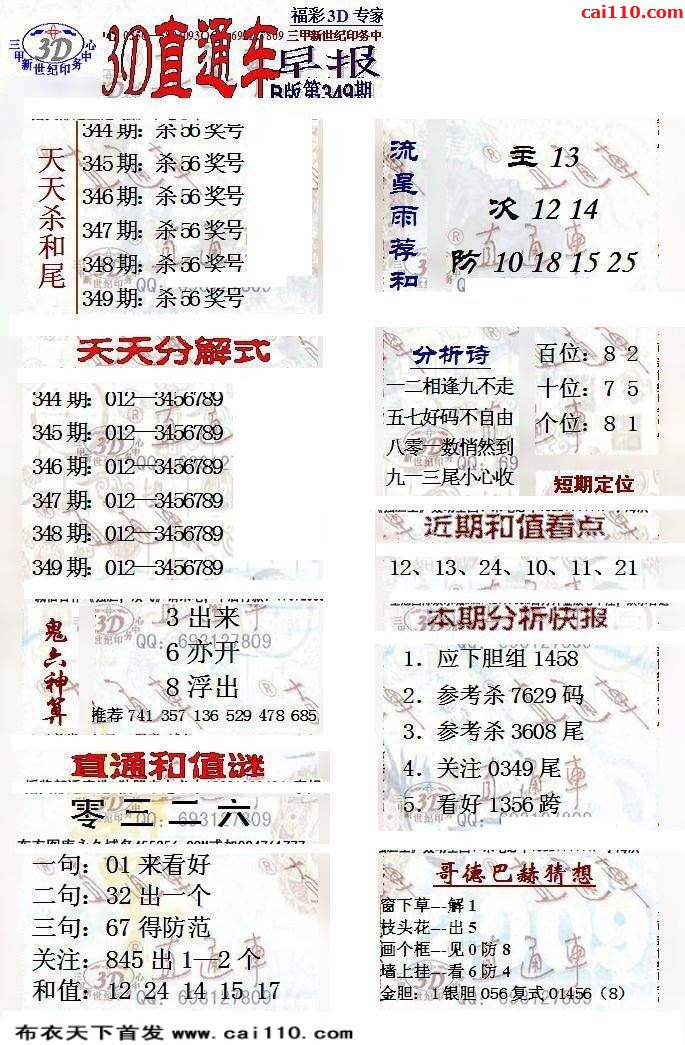 cai110.com
福彩3D 专家
三甲新世纪印务中心
3D
3D直通车
三甲新世纪印务中
早报
B版第349期
天天杀和尾
344期：杀56奖号
345期：杀56奖号
346期：杀56奖号
347期：杀56奖号
348期：杀56奖号
349期：杀56奖号
流星雨荐和
主 13
次 12 14
防 10 18 15 25
天天分解式
344期：012—3456789
345期：012—3456789
346期：012—3456789
347期：012—3456789
348期：012—3456789
349期：012—3456789
分析诗
一二相逢九不走
五七好码不自由
八零一数悄然到
九一三尾小心收
百位：8 2
十位：7 5
个位：8 1
短期定位
近期和值看点
12、13、24、10、11、21
鬼六神算
3 出来
6 亦开
8 浮出
QQ: 693127809
推荐 741 357 136 529 478 685
本期分析快报
1．应下胆组 1458
2．参考杀 7629 码
3．参考杀 3608 尾
4．关注 0349 尾
5．看好 1356 跨
直通和值谜
零 三 二 六
一句：01 来看好
二句：32 出一个
三句：67 得防范
关注：845 出 1—2 个
和值：12 24 14 15 17
哥德巴赫猜想
窗下草---解 1
枝头花---出 5
画个框---见 0 防 8
墙上挂---看 6 防 4
金胆：1 银胆 056 复式 01456（8）
布衣天下首发 www.cai110.com